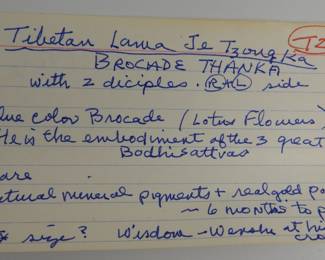 Tibetan Lama Je Tzongka
TZ
BROCADE THANKA
with 2 diciples. R+L side
lue color Brocade (Lotus Flowers)
He is the embodiment of the 3 great
Bodhisattvas
are
tural mineral pigments + real gold po
~ 6 months to p
size? Wisdom - Wenshu at hi
cro